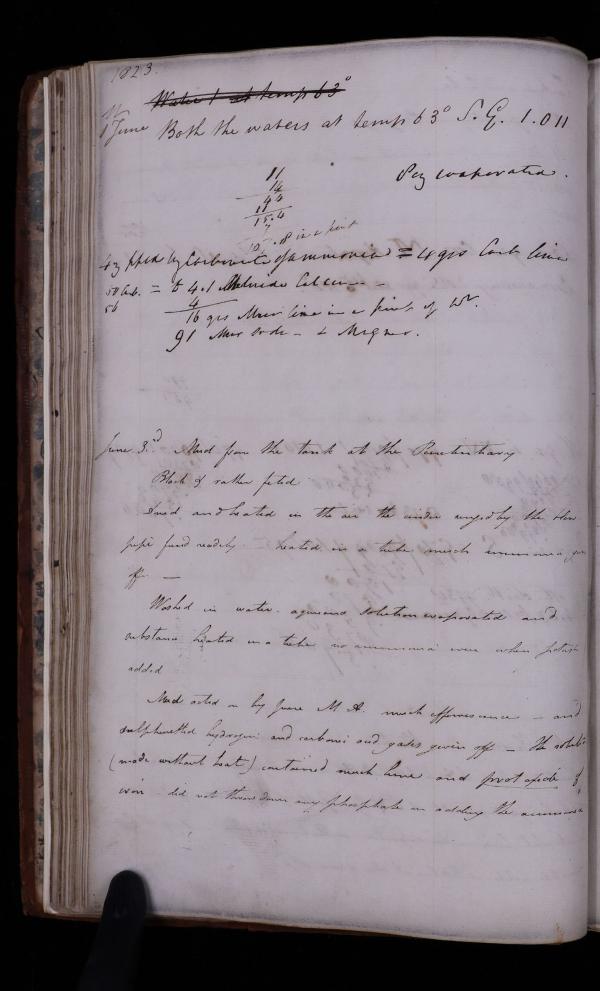 1823.
Water 1 at temp 63°
1 June Both the waters at temp 63° S.G. 1.011
8 oz evaporated.
11
14
44
11
15.4
7
107.8 in a pint
4 oz pptd by Carbonate of ammonia = 4 grs Carb lime
50 Carb. = to 4.1 Calcium
56
4
16 grs Mur lime in a pint of Wr.
91 Mur soda - & Magnes.
June 3rd. Mud from the tank at the Penitentiary
Black & rather fetid
Dried and heated in the air the cinder urged by the blow
pipe fused readily. heated in a tube much ammonia given
off —
Washed in water. aqueous solution evaporated and
substance heated in a tube no ammonia even when potash
added
Mud acted on by pure M A. much effervescence - and
sulphuretted hydrogen and carbonic acid gases given off - the solution
(made without heat) contained much lime and protoxide of
iron - did not throw down any phosphate on adding the ammonia